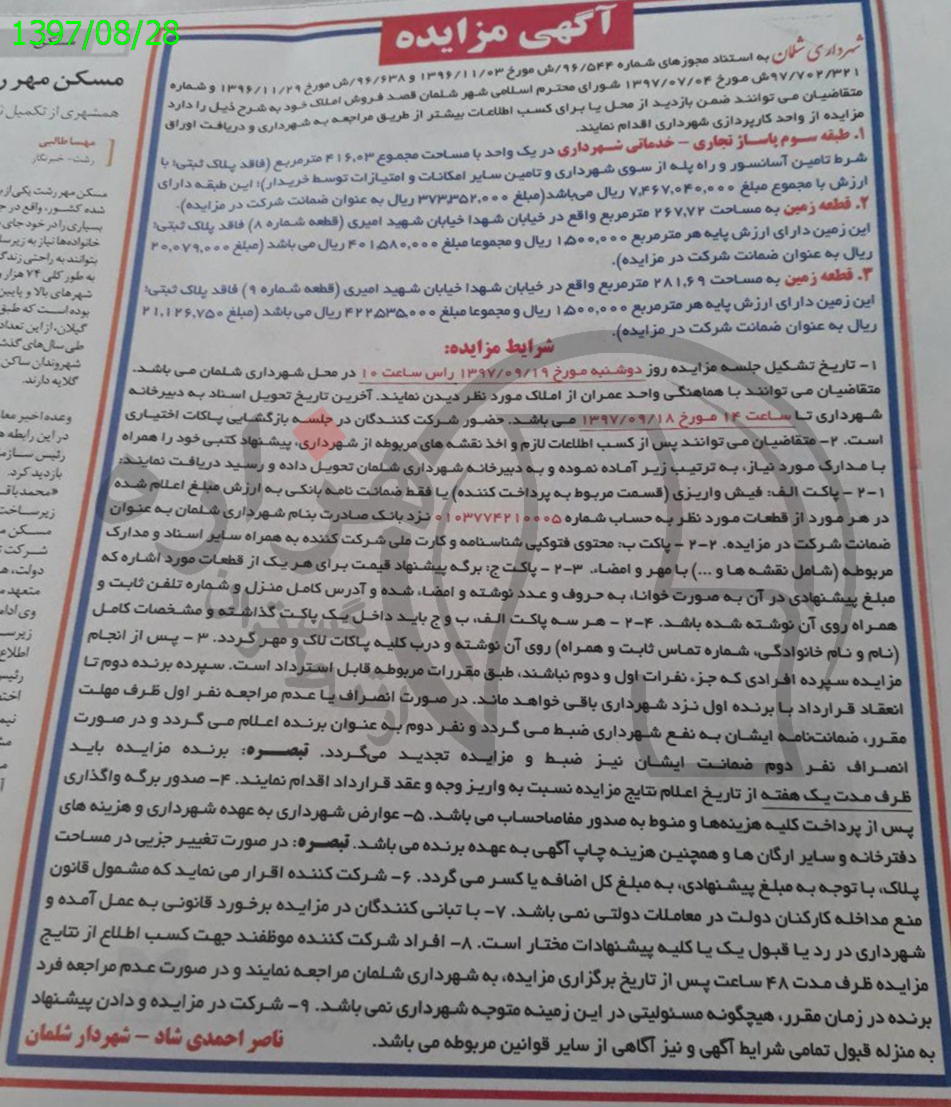 1397/08/28
آگهی مزایده
شهرداری شلمان به استناد مجوزهای شماره ۹۶/۵۴۴/ش مورخ ۱۳۹۶/۱۱/۰۳ و ۹۶/۶۳۸/ش مورخ ۱۳۹۶/۱۱/۲۹ و شماره
۹۷/۷۰۲/۳۲۱ش مورخ ۱۳۹۷/۰۷/۰۴ شورای محترم اسلامی شهر شلمان قصد فروش املاک خود به شرح ذیل را دارد
متقاضیان می توانند ضمن بازدید از محل یا برای کسب اطلاعات بیشتر از طریق مراجعه به شهرداری و دریافت اوراق
مزایده از واحد کارپردازی شهرداری اقدام نمایند.
۱. طبقه سوم پاساژ تجاری – خدماتی شهرداری در یک واحد با مساحت مجموع ۴۱۶,۰۳ مترمربع (فاقد پلاک ثبتی؛ با
شرط تامین آسانسور و راه پله از سوی شهرداری و تامین سایر امکانات و امتیازات توسط خریدار)؛ این طبقه دارای
ارزش با مجموع مبلغ ۷,۴۶۷,۰۴۰,۰۰۰ ریال می‌باشد(مبلغ ۳۷۳,۳۵۲,۰۰۰ ریال به عنوان ضمانت شرکت در مزایده).
۲. قطعه زمین به مساحت ۲۶۷,۷۲ مترمربع واقع در خیابان شهدا خیابان شهید امیری (قطعه شماره ۸) فاقد پلاک ثبتی؛
این زمین دارای ارزش پایه هر مترمربع ۱,۵۰۰,۰۰۰ ریال و مجموعا مبلغ ۴۰۱,۵۸۰,۰۰۰ ریال می باشد (مبلغ ۲۰,۰۷۹,۰۰۰
ریال به عنوان ضمانت شرکت در مزایده).
۳. قطعه زمین به مساحت ۲۸۱,۶۹ مترمربع واقع در خیابان شهدا خیابان شهید امیری (قطعه شماره ۹) فاقد پلاک ثبتی؛
این زمین دارای ارزش پایه هر مترمربع ۱,۵۰۰,۰۰۰ ریال و مجموعا مبلغ ۴۲۲,۵۳۵,۰۰۰ ریال می باشد (مبلغ ۲۱,۱۲۶,۷۵۰
ریال به عنوان ضمانت شرکت در مزایده).
شرایط مزایده:
۱- تاریخ تشکیل جلسه مزایده روز دوشنبه مورخ ۱۳۹۷/۰۹/۱۹ راس ساعت ۱۰ در محل شهرداری شلمان می باشد.
متقاضیان می توانند با هماهنگی واحد عمران از املاک مورد نظر دیدن نمایند. آخرین تاریخ تحویل اسناد به دبیرخانه
شهرداری تا ساعت ۱۴ مورخ ۱۳۹۷/۰۹/۱۸ می باشد. حضور شرکت کنندگان در جلسه بازگشایی پاکات اختیاری
است. ۲- متقاضیان می توانند پس از کسب اطلاعات لازم و اخذ نقشه های مربوطه از شهرداری، پیشنهاد کتبی خود را همراه
با مدارک مورد نیاز، به ترتیب زیر آماده نموده و به دبیرخانه شهرداری شلمان تحویل داده و رسید دریافت نمایند:
۲-۱ - پاکت الف: فیش واریزی (قسمت مربوط به پرداخت کننده) یا فقط ضمانت نامه بانکی به ارزش مبلغ اعلام شده
در هر مورد از قطعات مورد نظر به حساب شماره ۰۱۰۳۷۷۴۲۱۰۰۰۵ نزد بانک صادرت بنام شهرداری شلمان به عنوان
ضمانت شرکت در مزایده. ۲-۲ - پاکت ب: محتوی فتوکپی شناسنامه و کارت ملی شرکت کننده به همراه سایر اسناد و مدارک
مربوطه (شامل نقشه ها و ...) با مهر و امضاء. ۲-۳ - پاکت ج: برگه پیشنهاد قیمت برای هر یک از قطعات مورد اشاره که
مبلغ پیشنهادی در آن به صورت خوانا، به حروف و عدد نوشته و امضاء شده و آدرس کامل منزل و شماره تلفن ثابت و
همراه روی آن نوشته شده باشد. ۲-۴ - هر سه پاکت الف، ب و ج باید داخل یک پاکت گذاشته و مشخصات کامل
(نام و نام خانوادگی، شماره تماس ثابت و همراه) روی آن نوشته و درب کلیه پاکات لاک و مهر گردد. ۳ - پس از انجام
مزایده سپرده افرادی که جزء نفرات اول و دوم نباشند، طبق مقررات مربوطه قابل استرداد است. سپرده برنده دوم تا
انعقاد قرارداد با برنده اول نزد شهرداری باقی خواهد ماند. در صورت انصراف یا عدم مراجعه نفر اول ظرف مهلت
مقرر، ضمانت‌نامه ایشان به نفع شهرداری ضبط می گردد و نفر دوم به عنوان برنده اعلام می گردد و در صورت
انصراف نفر دوم ضمانت ایشان نیز ضبط و مزایده تجدید می‌گردد. تبصره: برنده مزایده باید
ظرف مدت یک هفته از تاریخ اعلام نتایج مزایده نسبت به واریز وجه و عقد قرارداد اقدام نمایند. ۴- صدور برگه واگذاری
پس از پرداخت کلیه هزینه‌ها و منوط به صدور مفاصاحساب می باشد. ۵- عوارض شهرداری به عهده شهرداری و هزینه های
دفترخانه و سایر ارگان ها و همچنین هزینه چاپ آگهی به عهده برنده می باشد. تبصره: در صورت تغییر جزیی در مساحت
پلاک، با توجه به مبلغ پیشنهادی، به مبلغ کل اضافه یا کسر می گردد. ۶- شرکت کننده اقرار می نماید که مشمول قانون
منع مداخله کارکنان دولت در معاملات دولتی نمی باشد. ۷- با تبانی کنندگان در مزایده برخورد قانونی به عمل آمده و
شهرداری در رد یا قبول یک یا کلیه پیشنهادات مختار است. ۸- افراد شرکت کننده موظفند جهت کسب اطلاع از نتایج
مزایده ظرف مدت ۴۸ ساعت پس از تاریخ برگزاری مزایده، به شهرداری شلمان مراجعه نمایند و در صورت عدم مراجعه فرد
برنده در زمان مقرر، هیچگونه مسئولیتی در این زمینه متوجه شهرداری نمی باشد. ۹- شرکت در مزایده و دادن پیشنهاد
به منزله قبول تمامی شرایط آگهی و نیز آگاهی از سایر قوانین مربوطه می باشد.
ناصر احمدی شاد – شهردار شلمان
مسکن
مسکن مهر ر
همشهری از تکمیل
مهسا طالبی
رشت - خبرنگار
مسکن مهر رشت یکی از
شده کشور، واقع در
بسیاری را در خود جای
خانواده‌ها نیاز به زیرسا
بتوانند به راحتی زندگ
به طور کلی ۷۴ هزار و
شهرهای بالا و پایین
بوده است که طبق
گیلان، از این تعداد
طی سال‌های گذش
شهروندان ساکن
گلایه دارند.
وعده اخیر معا
در این رابطه
رئیس سازما
بازدید کرد.
«محمدباق
زیرساخت
مسکن م
شرکت
دولت، ه
متعهد م
وی اداه
زیرسـ
اطلاع
رئیس
اخت
نیم